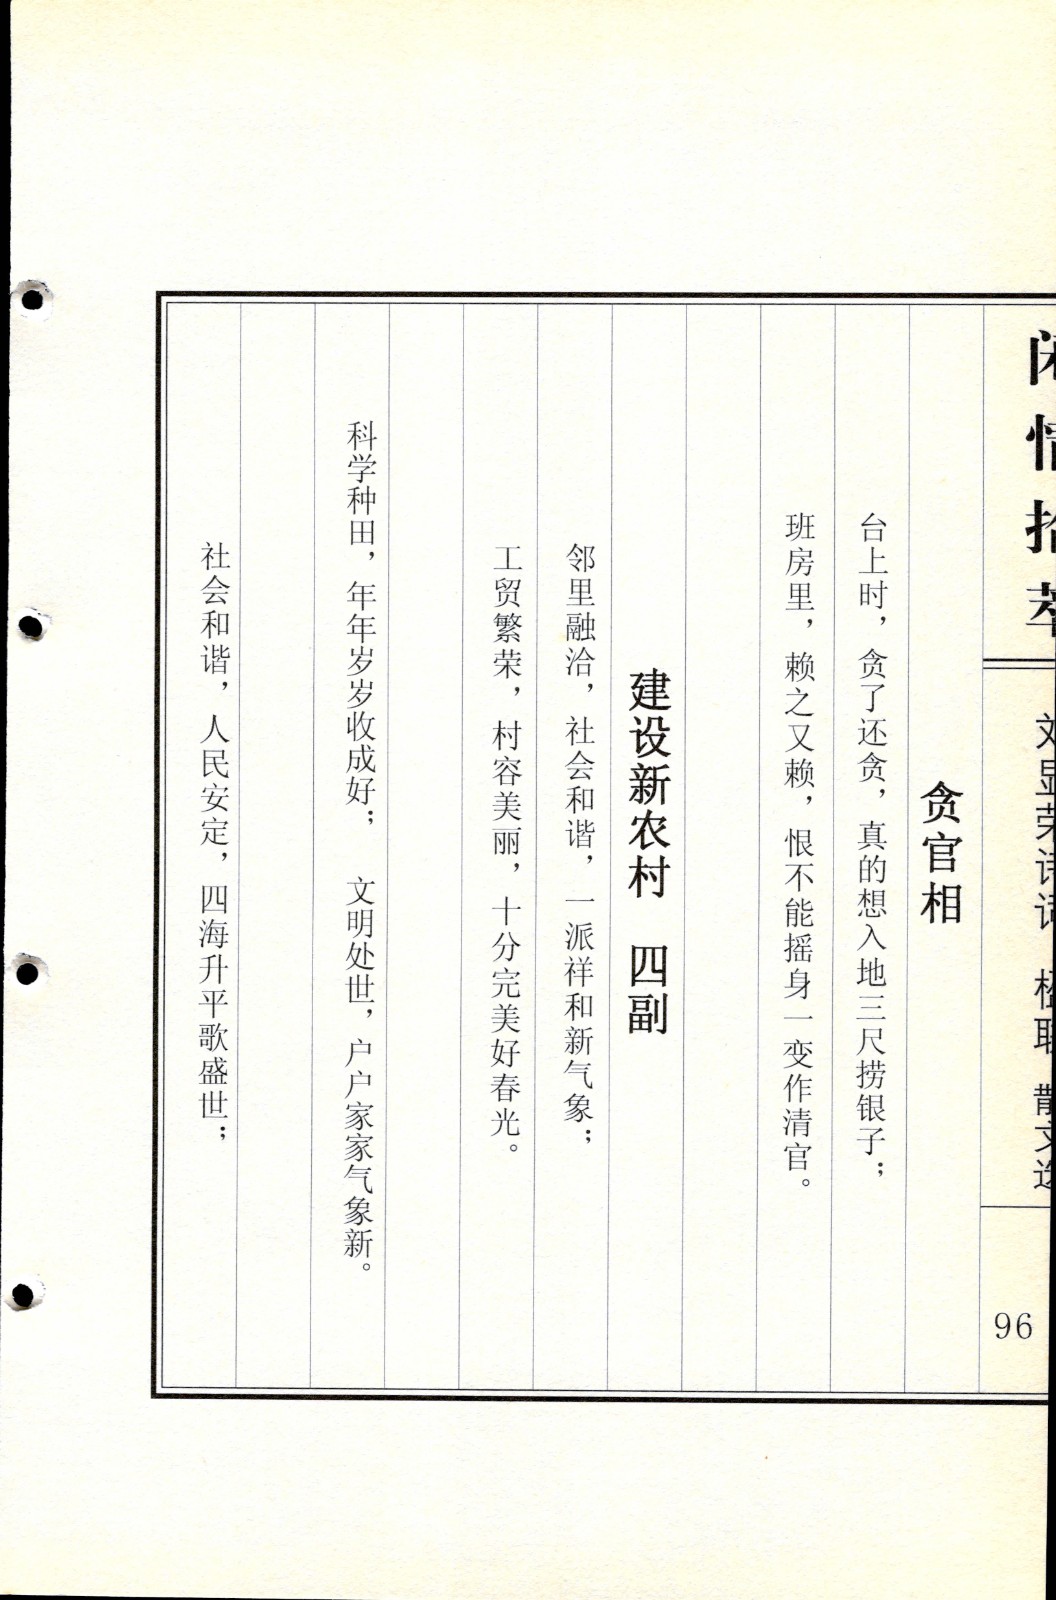 闲情拾萃
刘显荣诗词 楹联 散文选
96
贪官相
台上时，贪了还贪，真的想入地三尺捞银子；
班房里，赖之又赖，恨不能摇身一变作清官。
建设新农村 四副
邻里融洽，社会和谐，一派祥和新气象；
工贸繁荣，村容美丽，十分完美好春光。
科学种田，年年岁岁收成好； 文明处世，户户家家气象新。
社会和谐，人民安定，四海升平歌盛世；